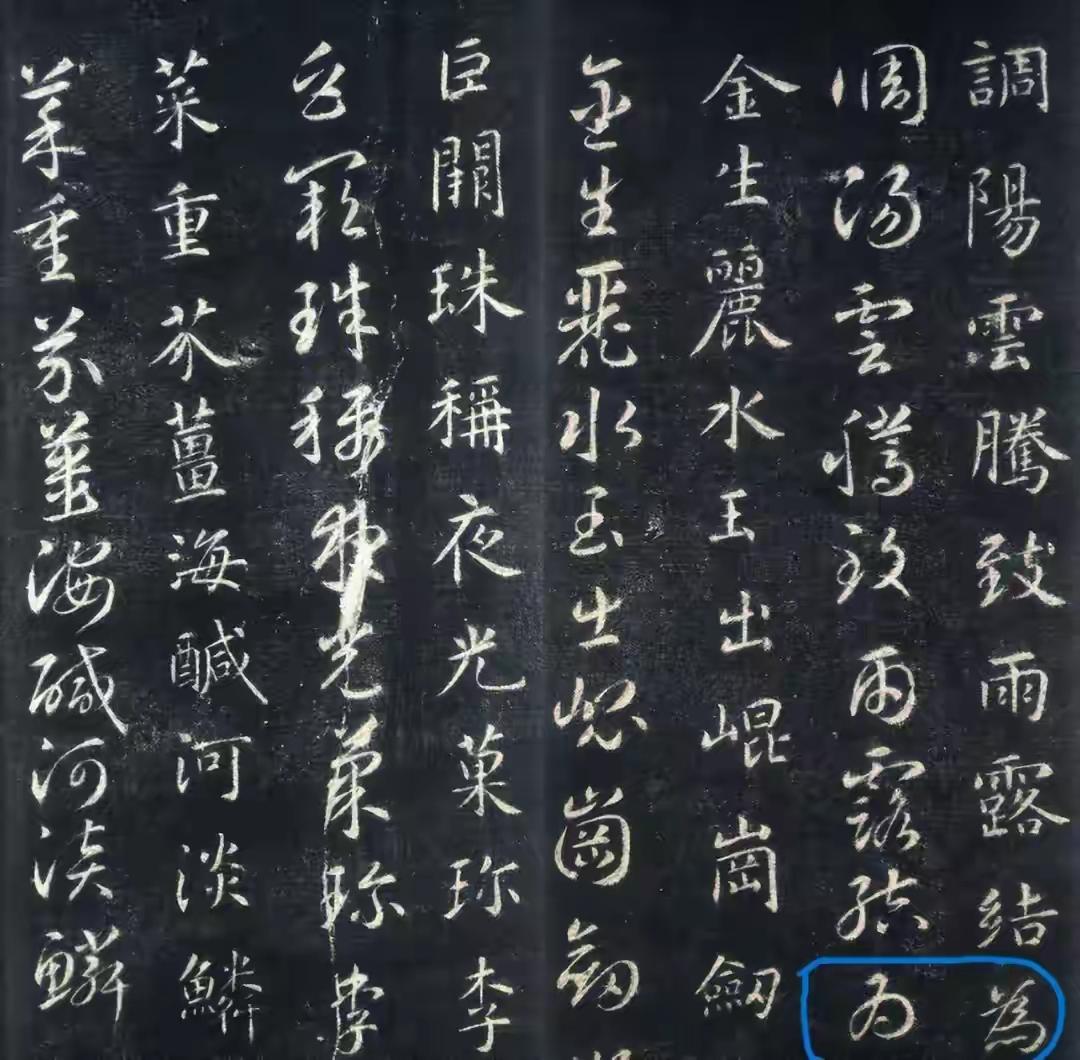 調陽雲騰致雨露結為
調陽雲騰致雨露結為
金生麗水玉出崐崗劒
金生麗水玉出崐崗劒
巨闕珠稱夜光菓珎李
巨闕珠稱夜光菓珎李
菜重芥薑海醎河淡鱗
菜重芥薑海醎河淡鱗